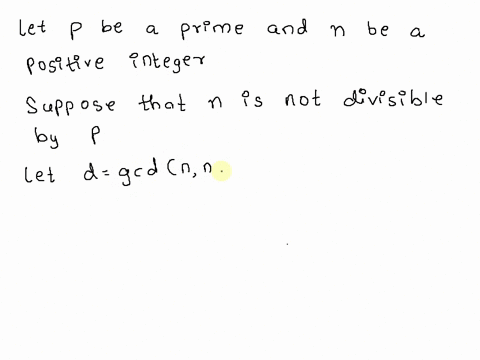 Let p be a prime and n be a
positive integer
Suppose that n is not divisible
by p
Let d = gcd (n, n